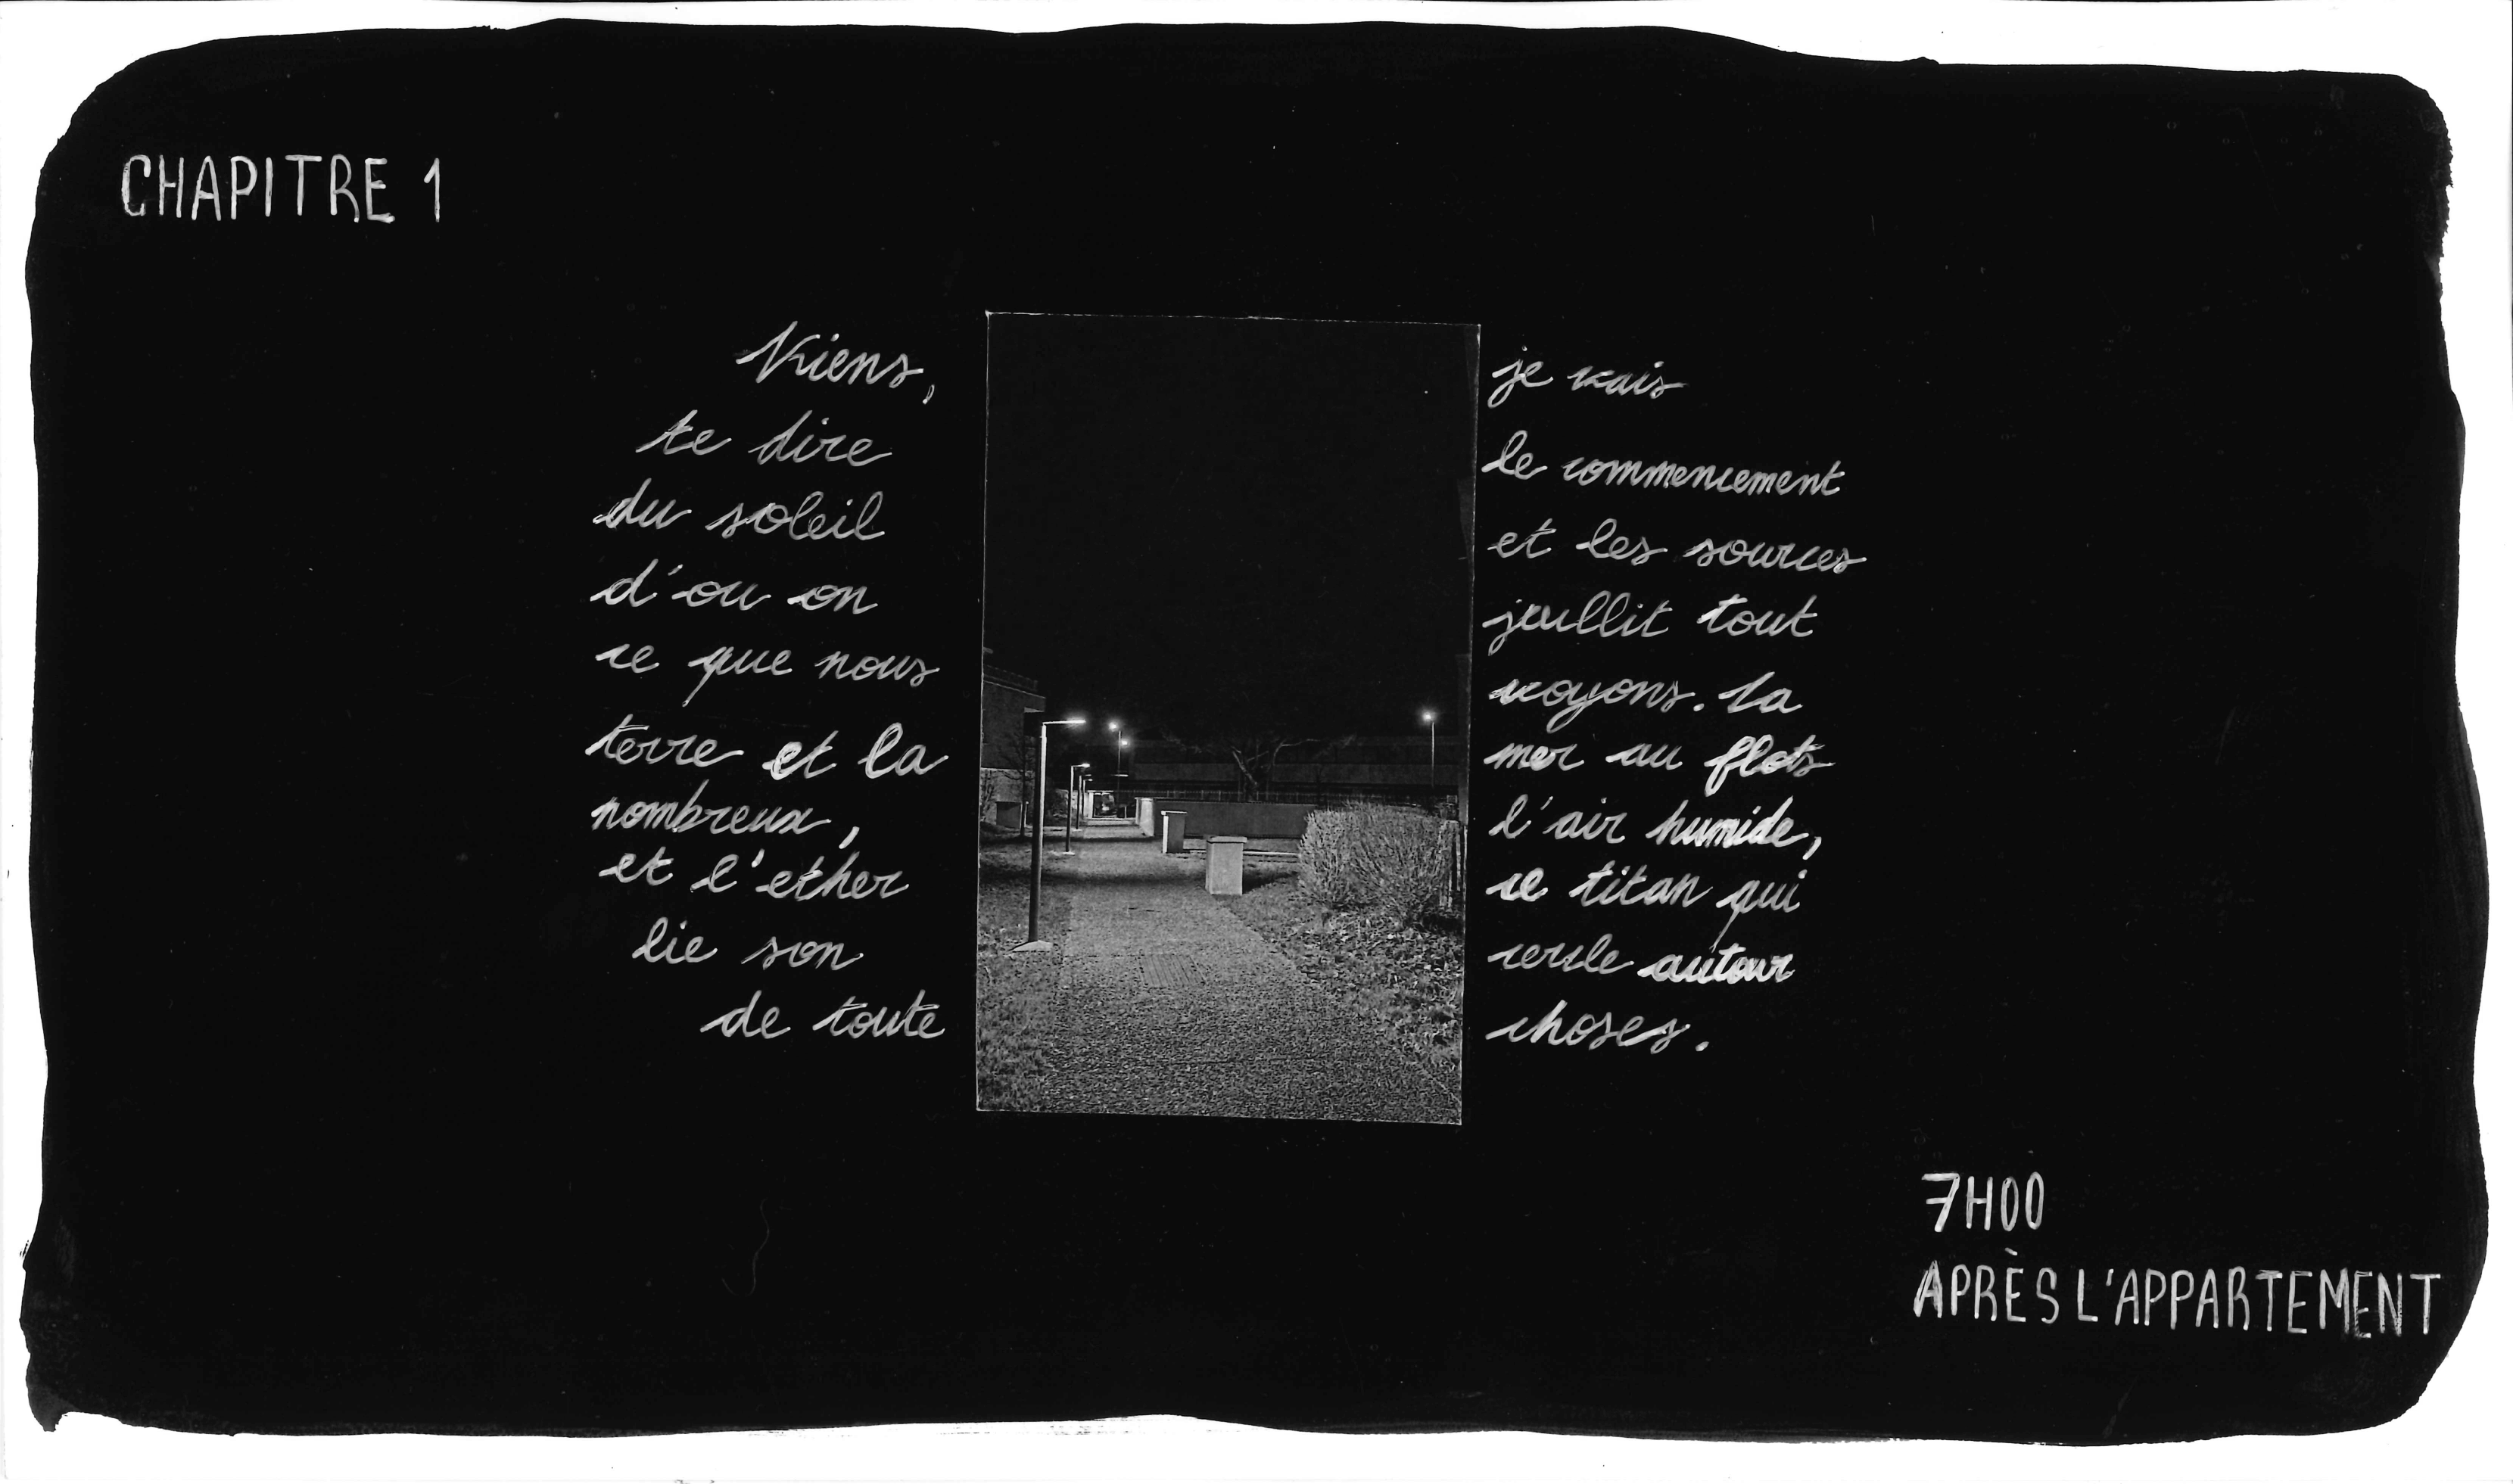 CHAPITRE 1
Viens, je vais
te dire le commencement
du soleil et les sources
d'ou on tout
ce que nous voyons. La
terre et la mer au flots
nombreux, l'air humide,
et l'ether ce titan qui
lie son cercle autour
de toute choses.
7H00
APRÈS L'APPARTEMENT